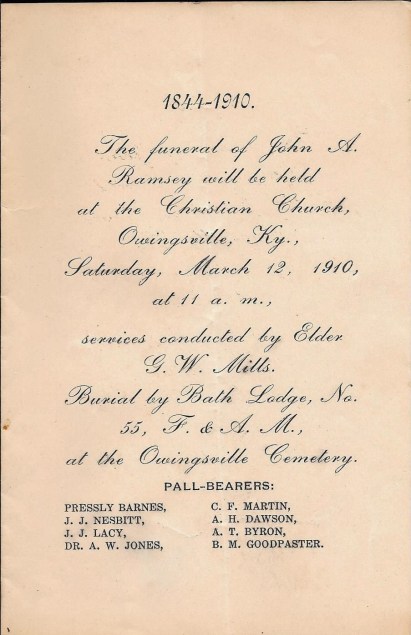 1844-1910.
The funeral of John A.
Ramsey will be held
at the Christian Church,
Owingsville, Ky.,
Saturday, March 12, 1910,
at 11 a. m.,
services conducted by Elder
G. W. Mills.
Burial by Bath Lodge, No.
55, F. & A. M.,
at the Owingsville Cemetery.
PALL-BEARERS:
PRESSLY BARNES, C. F. MARTIN,
J. J. NESBITT, A. H. DAWSON,
J. J. LACY, A. T. BYRON,
DR. A. W. JONES, B. M. GOODPASTER.